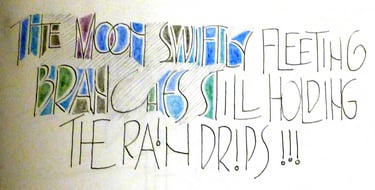 THE MOON SWIFTLY FLEETING
BRANCHES STILL HOLDING
THE RAIN DRIPS !!!